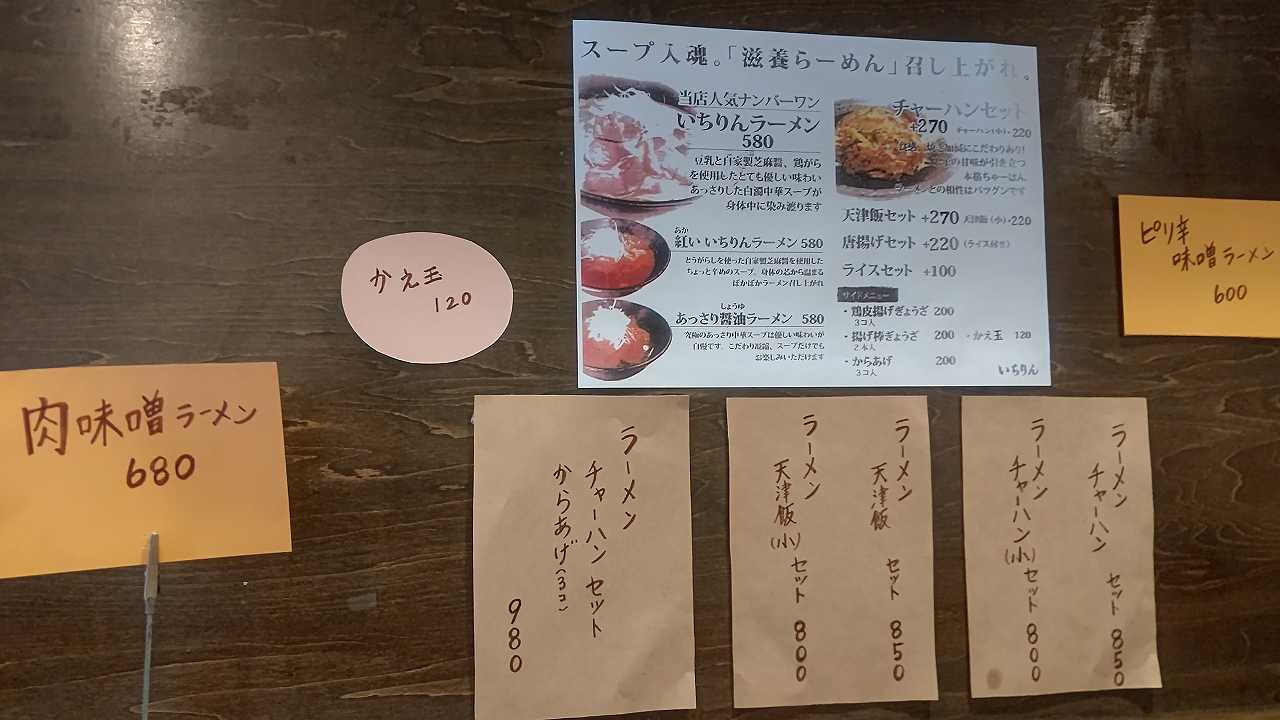 スープ入魂。「滋養らーめん」召し上がれ。
当店人気ナンバーワン
いちりんラーメン
580
豆乳と自家製芝麻醤、鶏がら
を使用したとても優しい味わい
あっさりした白濁中華スープが
身体中に染み渡ります
あか
紅い いちりんラーメン 580
とうがらしを使った自家製芝麻醤を使用した
ちょっと辛めのスープ、身体の芯から温まる
ぽかぽかラーメン召し上がれ
しょうゆ
あっさり醤油ラーメン 580
究極のあっさり中華スープは優しい味わいが
自慢です。こだわり湯麺、スープだけでも
お楽しみいただけます
チャーハンセット
+270 チャーハン(小)・220
にこだわりあり!
の甘味が引き立つ
本格ちゃーはん
ラーメンとの相性はバツグンです
天津飯セット +270 天津飯(小)・220
唐揚げセット +220 (ライス付き)
ライスセット +100
サイドメニュー
・鶏皮揚げぎょうざ 200
3コ入
・揚げ棒ぎょうざ 200
2本入
・かえ玉 120
・からあげ 200
3コ入
いちりん
かえ玉
120
肉味噌ラーメン
680
ピリ辛
味噌ラーメン
600
ラーメン
チャーハン セット
からあげ(3コ)
980
ラーメン
天津飯 セット 850
ラーメン
天津飯(小)セット 800
ラーメン
チャーハン セット 850
ラーメン
チャーハン(小)セット 800